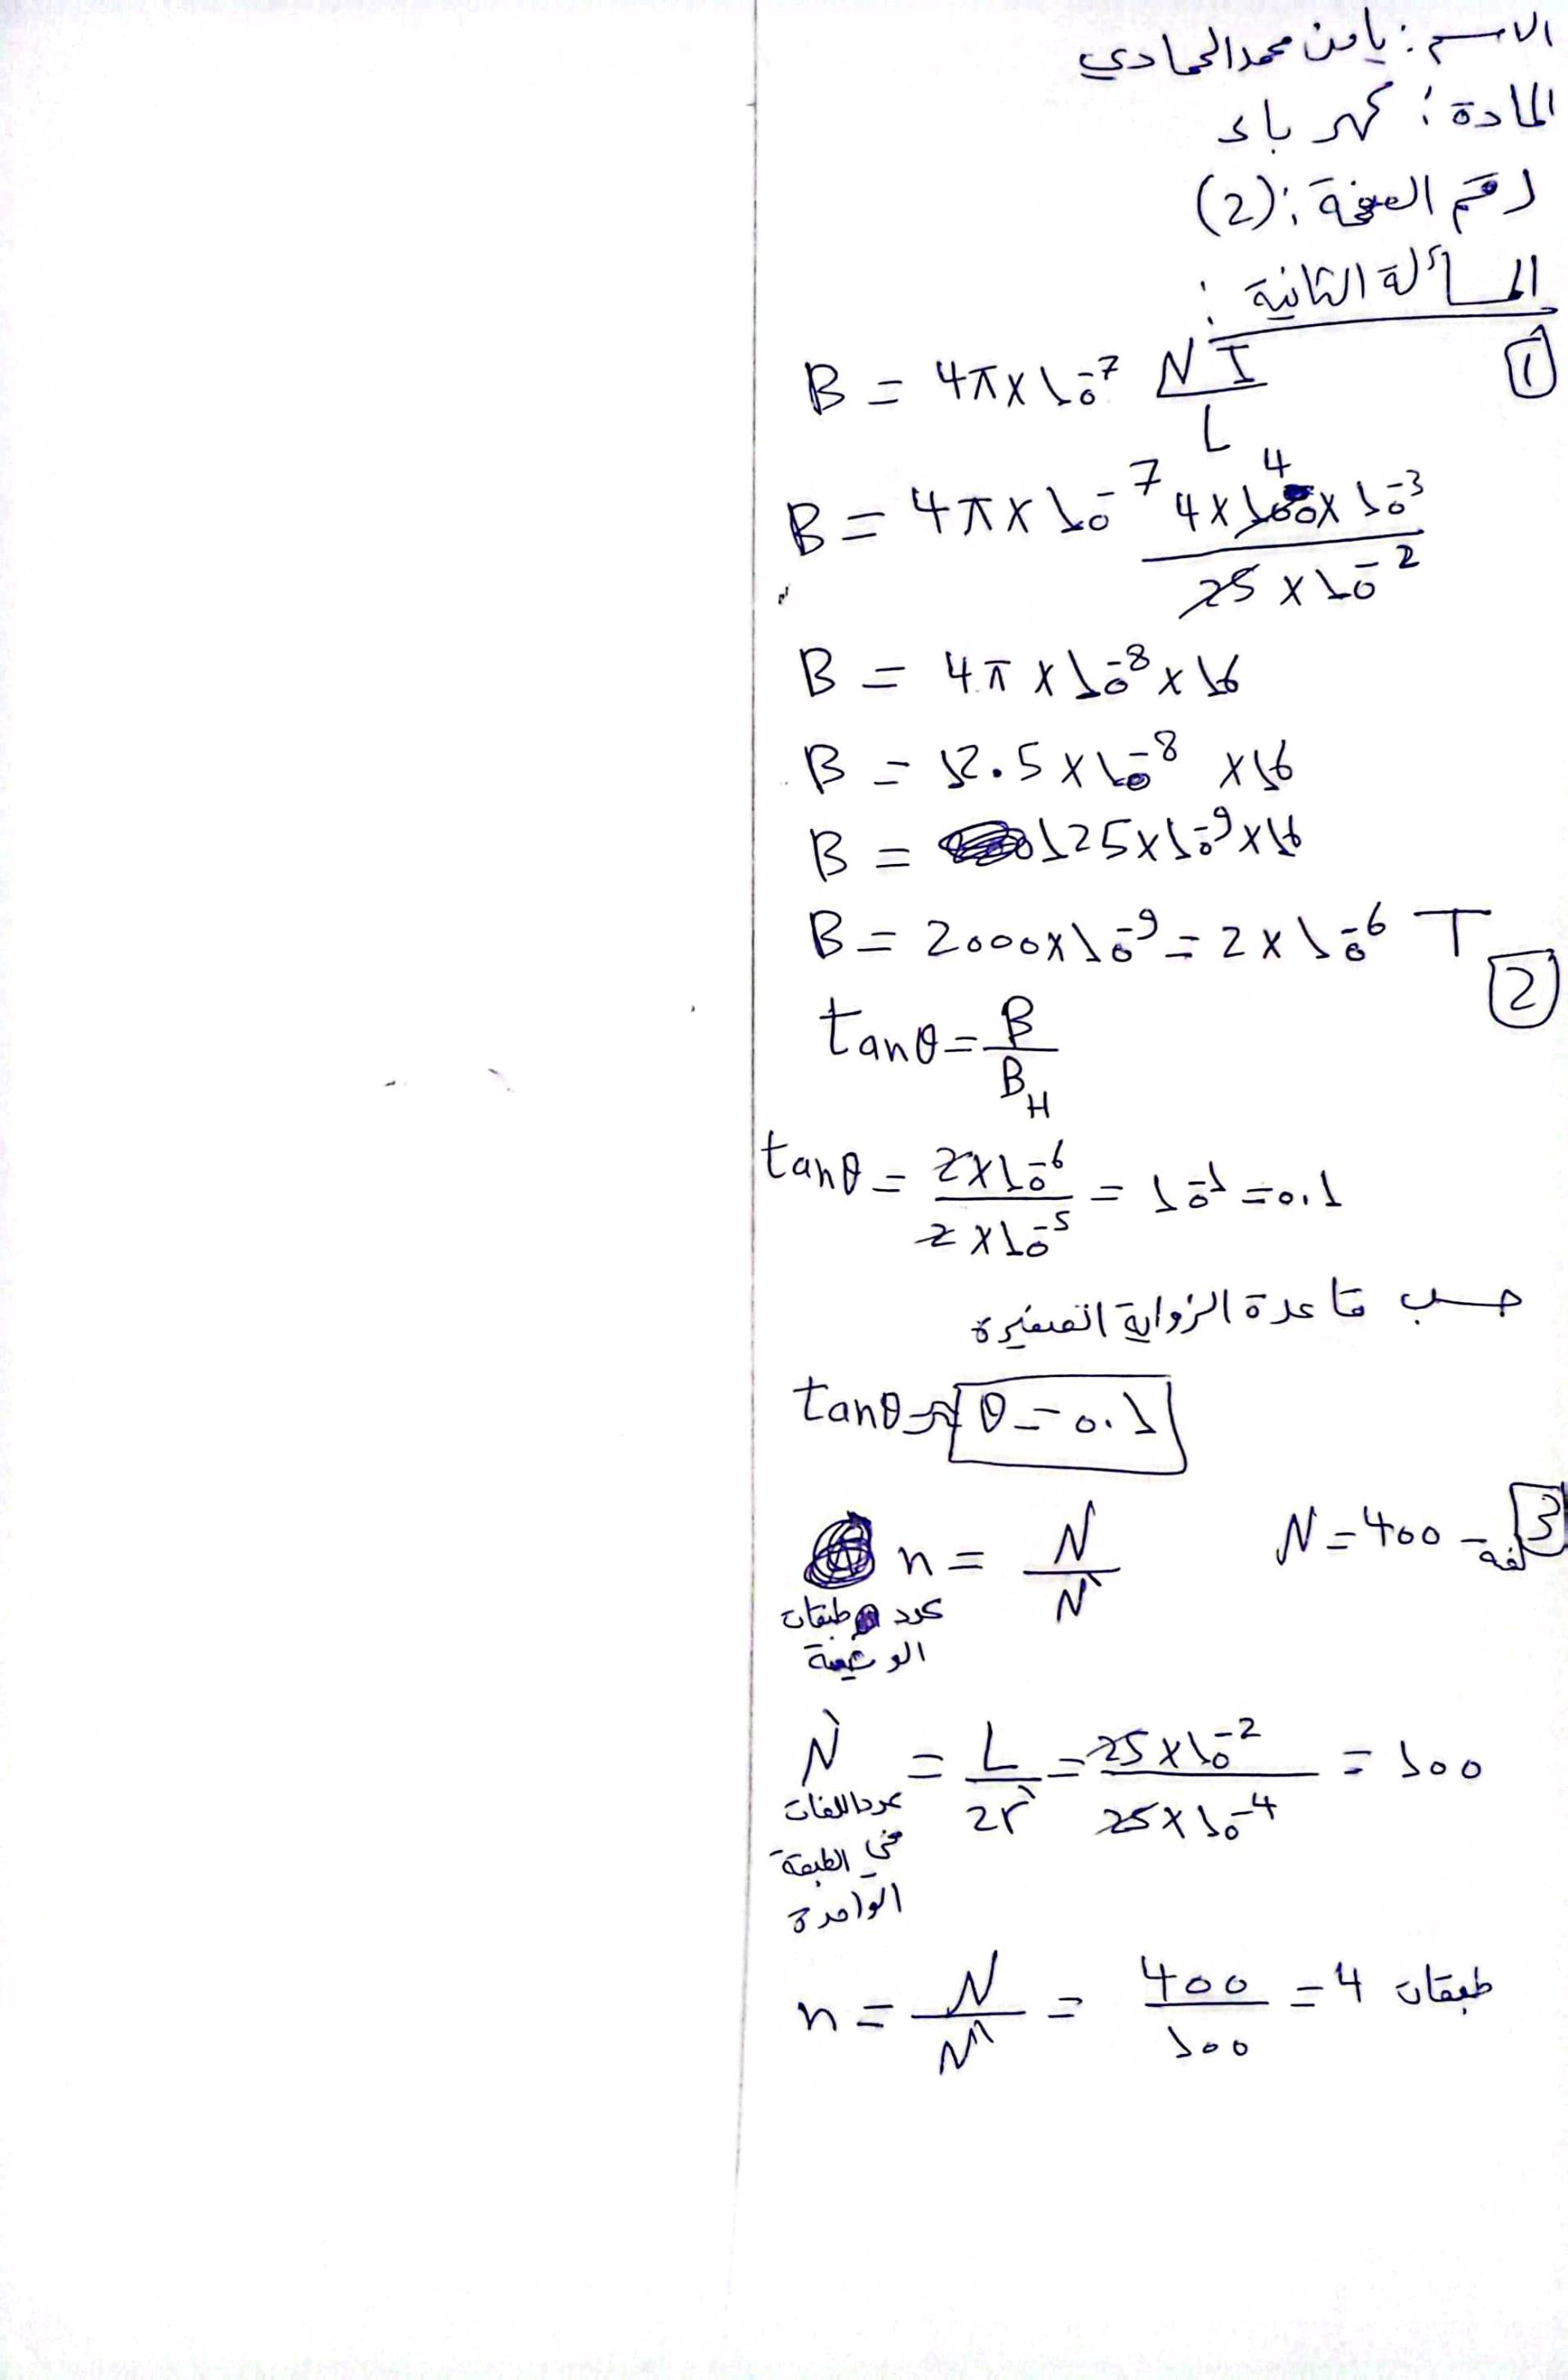 الاسم : يامن محمد الحمادي
المادة : كهرباء
رقم الصفحة : (2)
المسألة الثانية :
1
B = 4π×10⁻⁷ NI/L
B = 4π×10⁻⁷ 4×100×10⁻³/25×10⁻² 4
B = 4π×10⁻⁸×16
B = 12.5×10⁻⁸ ×16
B = 125×10⁻⁹×16
B = 2000×10⁻⁹ = 2×10⁻⁶ T
2
tanθ = B/B_H
tanθ = 2×10⁻⁶/2×10⁻⁵ = 10⁻¹ = 0.1
حسب قاعدة الزواية الصغيرة
tanθ ≈ θ = 0.1
3
n = N/N` N = 400 لفة
عدد طبقات
الوشيعة
N` = L/2r` = 25×10⁻²/25×10⁻⁴ = 100
عدد اللفات
في الطبقة
الواحدة
n = N/N` = 400/100 = 4 طبقات